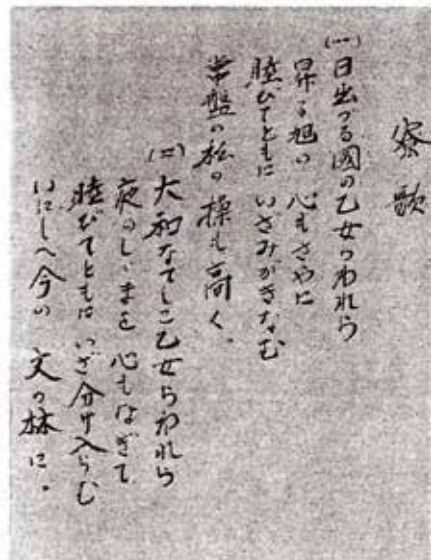 寮歌
(一)日出づる國の乙女らわれら
昇る旭の 心もさやに
睦びてともに いざみがきなむ
常盤の松の 操も高く。
(二)大和なでしこ乙女らわれら
夜のしゞまを 心もなぎて
睦びてともに いざ分け入らむ
いにしへ今の 文の林に。